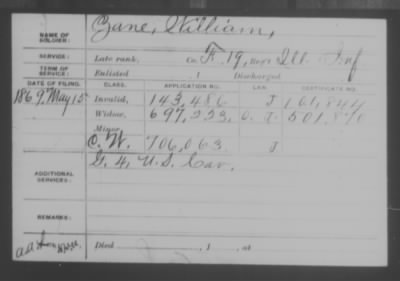 NAME OF SOLDIER: Zane, William,
SERVICE: Late rank, Co. F. 19, Reg't Ill Inf
TERM OF SERVICE: Enlisted , 1 Discharged
DATE OF FILING. CLASS. APPLICATION NO. LAW. CERTIFICATE NO.
1869 May 15 Invalid, 143,486 J 101,844
Widow, 697,223, O. J. 501,870
Minor,
C. W. 706,063 J
ADDITIONAL SERVICES: G. 4, U.S. Cav.
REMARKS:
Died , 1 , at